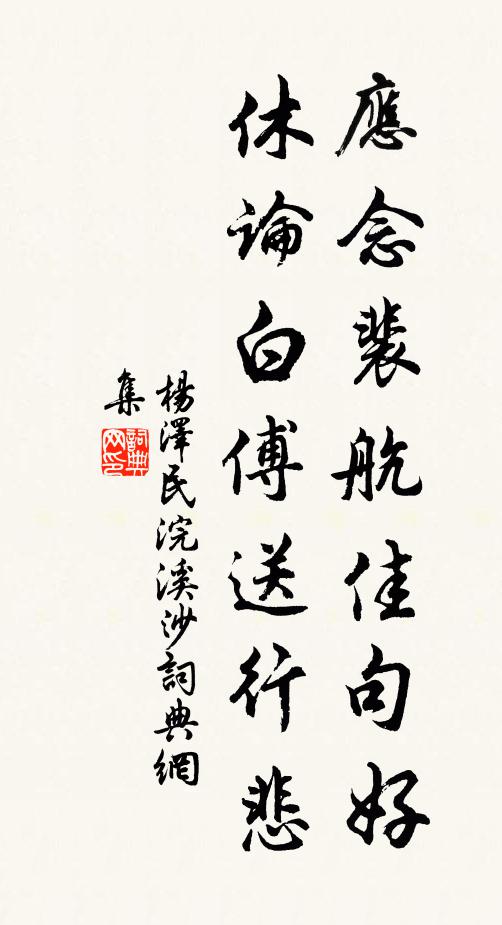 應念裴航佳句好
休論白傅送行悲
楊澤民浣溪沙詞典網
集
詞典
网印